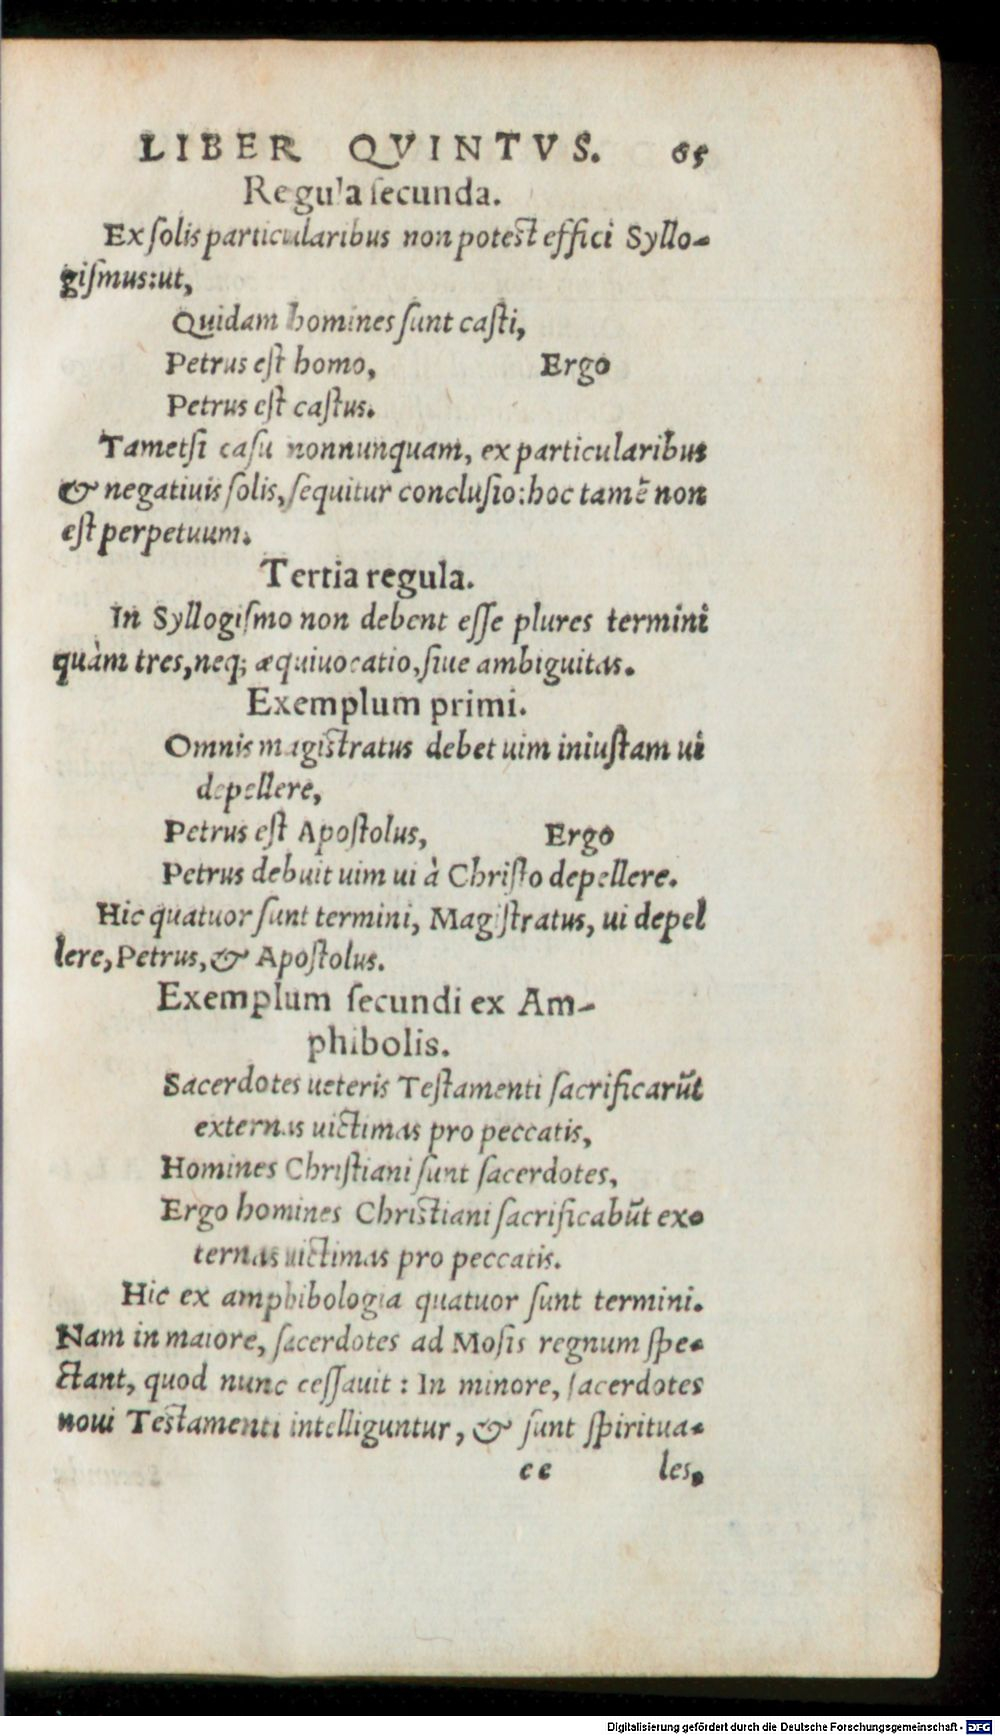 LIBER QVINTVS. 65
Regula ſecunda.
Ex ſolis particularibus non potest effici Syllo-
giſmus: ut,
Quidam homines ſunt caſti,
Petrus eſt homo, Ergo
Petrus eſt caſtus.
Tametſi caſu nonnunquam, ex particularibus
& negatiuis ſolis, ſequitur concluſio: hoc tamẽ non
eſt perpetuum.
Tertia regula.
In Syllogiſmo non debent eſſe plures termini
quàm tres, neq; æquiuocatio, ſiue ambiguitas.
Exemplum primi.
Omnis magistratus debet uim iniuſtam ui
depellere,
Petrus eſt Apoſtolus, Ergo
Petrus debuit uim ui à Chriſto depellere.
Hic quatuor ſunt termini, Magiſtratus, ui depel
lere, Petrus, & Apoſtolus.
Exemplum ſecundi ex Am-
phibolis.
Sacerdotes ueteris Teſtamenti ſacrificarũt
externas uictimas pro peccatis,
Homines Chriſtiani ſunt ſacerdotes,
Ergo homines Christiani ſacrificabũt ex-
ternas uictimas pro peccatis.
Hic ex amphibologia quatuor ſunt termini.
Nam in maiore, ſacerdotes ad Moſis regnum ſpe-
ctant, quod nunc ceſſauit: In minore, ſacerdotes
noui Testamenti intelliguntur, & ſunt ſpiritua-
ee les.
Digitalisierung gefördert durch die Deutsche Forschungsgemeinschaft - DFG